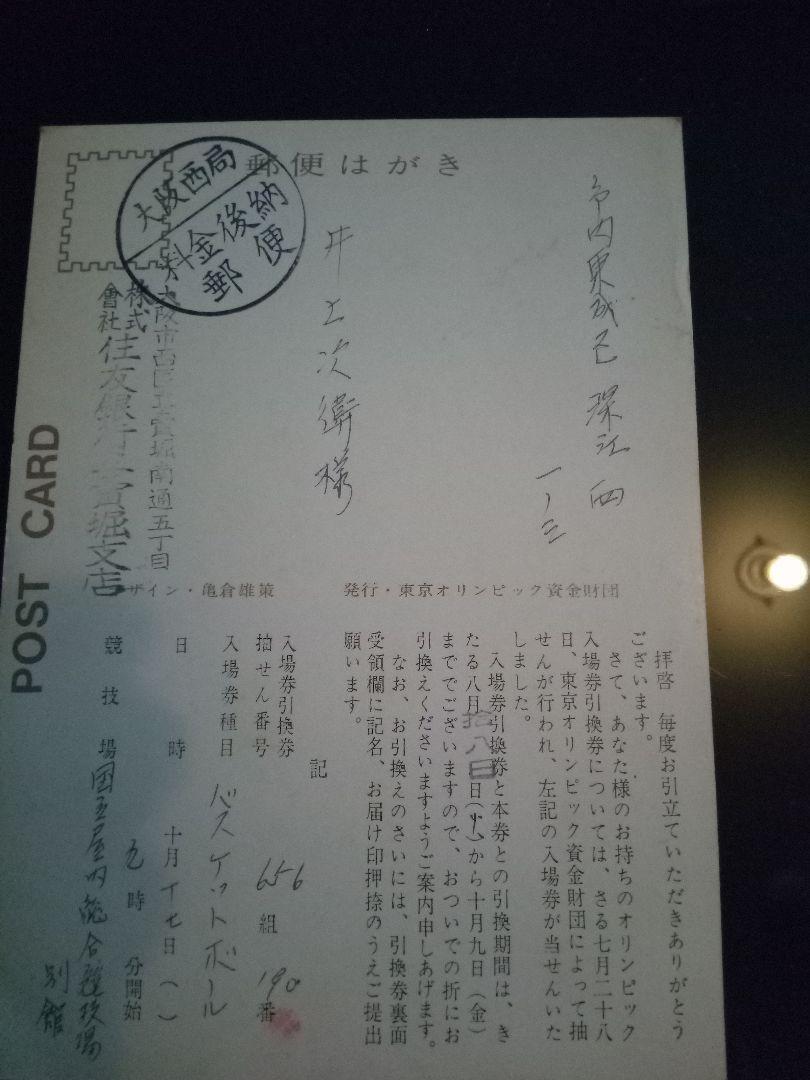 郵便はがき
大阪西局
料金後納
郵便
市内東成区深江西
一ノ三
井上次衛様
大阪市西区立賣堀南通五丁目
株式
會社
住友銀行立賣堀支店
POST CARD
発行・東京オリンピック資金財団
ザイン・亀倉雄策
拝啓 毎度お引立ていただきありがとう
ございます。
さて、あなた様のお持ちのオリンピック
入場券引換券については、さる七月二十八
日、東京オリンピック資金財団によって抽
せんが行われ、左記の入場券が当せんいた
しました。
入場券引換券と本券との引換期間は、き
たる八月拾八日日(火)から十月九日(金)
まででございますので、おついでの折にお
引換えくださいますようご案内申しあげます。
なお、お引換えのさいには、引換券裏面
受領欄に記名、お届け印押捺のうえご提出
願います。
記
入場券引換券
抽せん番号 656組 190番
入場券種目 バスケットボール
日時 十月十七日( )
九時 分開始
競技場 国立屋内総合競技場
別館